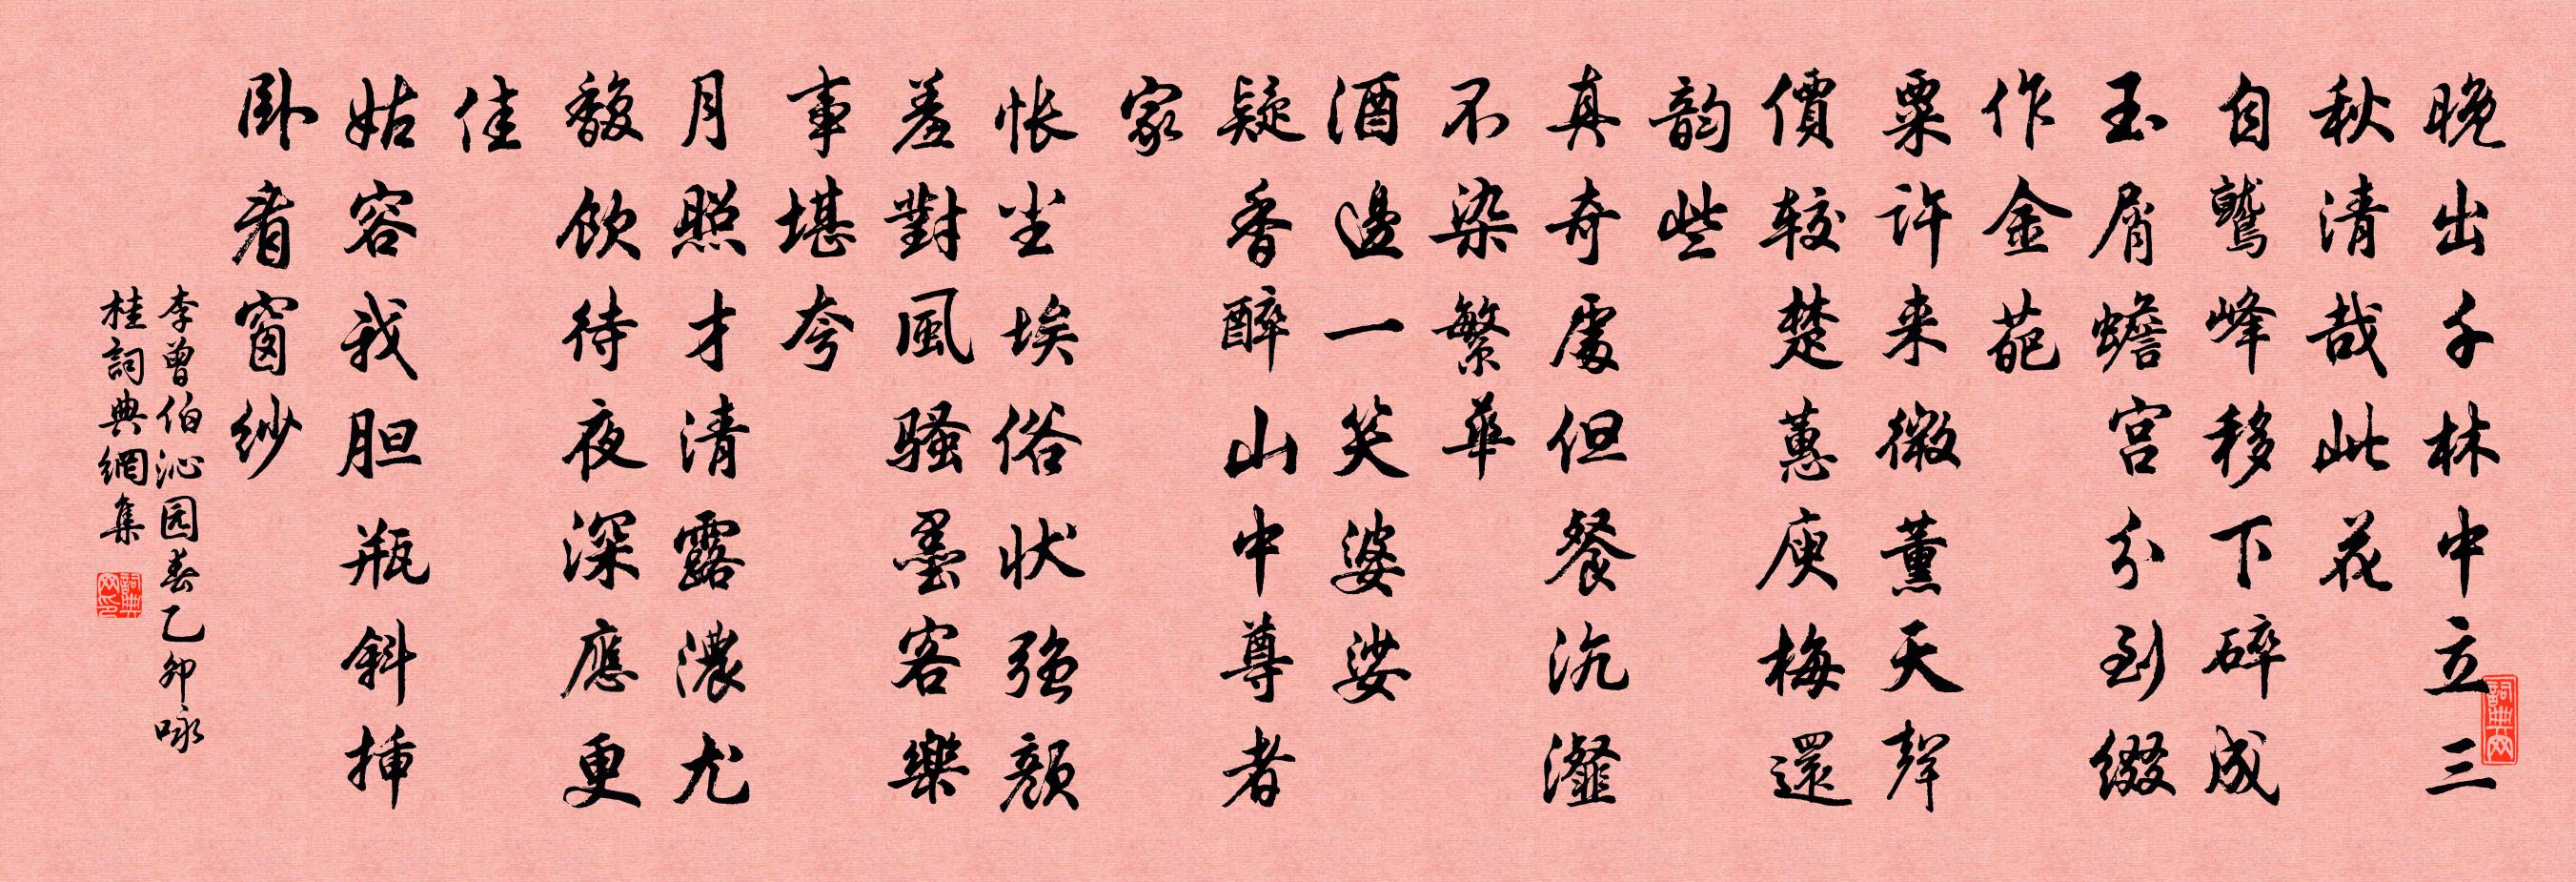 晚出千林中立三
秋清哉此花
自鷲峰移下碎成
玉屑蟾宫分到缀
作金葩
粟许来微薰天聲
價較楚蕙庾梅還
韵些
真奇處但餐沆瀣
不染繁華
酒邊一笑婆娑
疑香醉山中尊者
家
怅尘埃俗状强颜
羞對風骚墨客樂
事堪夸
月照才清露濃尤
馥饮待夜深應更
佳
姑容我胆瓶斜挿
卧看窗纱
李曾伯沁园春乙卯咏
桂詞典網集
詞典网
詞典网印